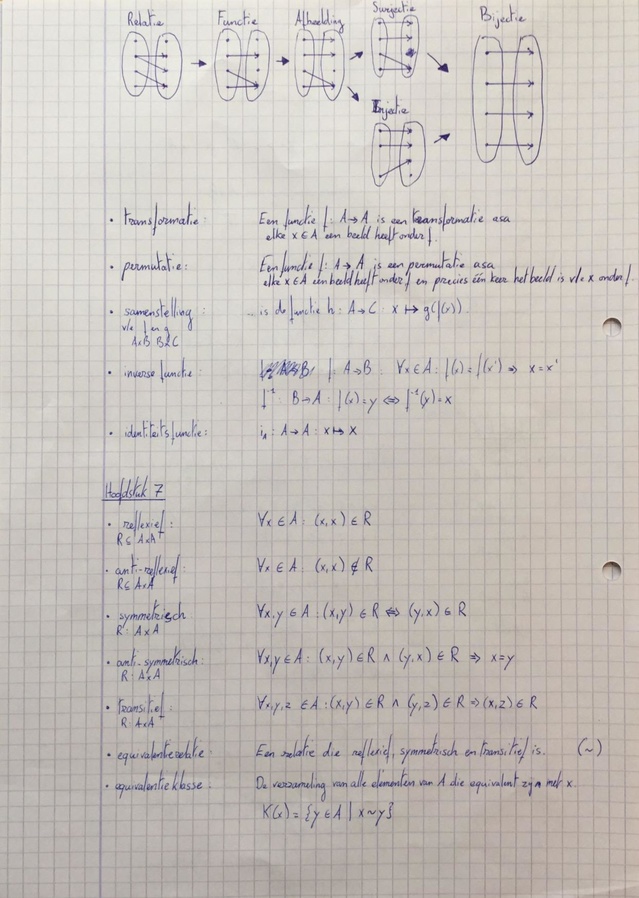 Relatie
Functie
Afbeelding
Surjectie
Injectie
Bijectie
• transformatie: Een functie f: A → A is een transformatie asa
elke x ∈ A een beeld heeft onder f.
• permutatie: Een functie f: A → A is een permutatie asa
elke x ∈ A een beeld heeft onder f en precies één keer het beeld is v/e x onder f.
• samenstelling ... is de functie h: A → C : x ↦ g(f(x)).
v/e f en g
A×B B×C
• inverse functie: f: A → B : ∀x ∈ A : f(x) = f(x') ⇒ x = x'
f⁻¹: B → A : f(x) = y ⇔ f⁻¹(y) = x
• identiteitsfunctie: i_A : A → A : x ↦ x
Hoofdstuk 7
• reflexief: ∀x ∈ A : (x,x) ∈ R
R ⊆ A×A
• anti-reflexief: ∀x ∈ A : (x,x) ∉ R
R ⊆ A×A
• symmetrisch ∀x,y ∈ A : (x,y) ∈ R ⇔ (y,x) ∈ R
R: A×A
• anti-symmetrisch: ∀x,y ∈ A : (x,y) ∈ R ∧ (y,x) ∈ R ⇒ x=y
R: A×A
• transitief: ∀x,y,z ∈ A : (x,y) ∈ R ∧ (y,z) ∈ R ⇒ (x,z) ∈ R
R: A×A
• equivalentierelatie: Een relatie die reflexief, symmetrisch en transitief is. (~)
• equivalentieklasse: De verzameling van alle elementen van A die equivalent zijn met x.
K(x) = {y ∈ A | x ~ y}